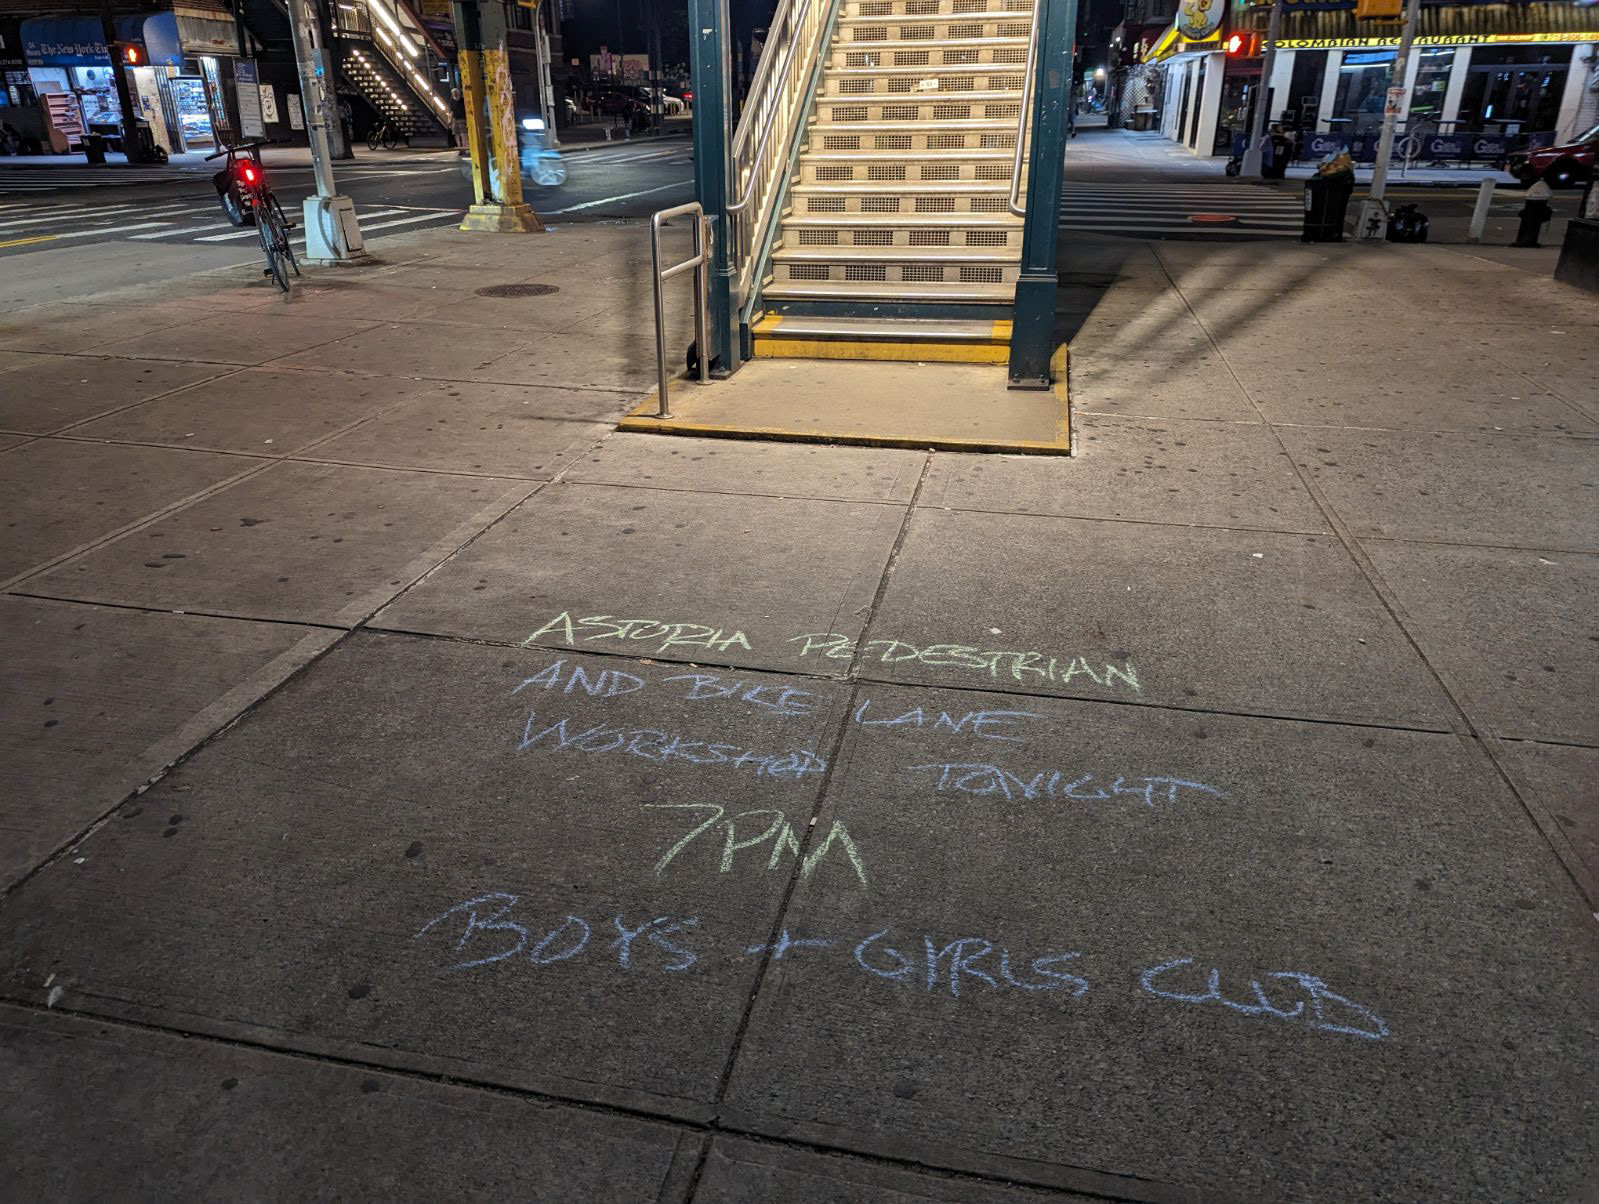 The New York Tim
COLOMBIAN RESTAURANT
ASTORIA PEDESTRIAN
AND BIKE LANE
WORKSHOP TONIGHT
7PM
BOYS + GIRLS CLUB